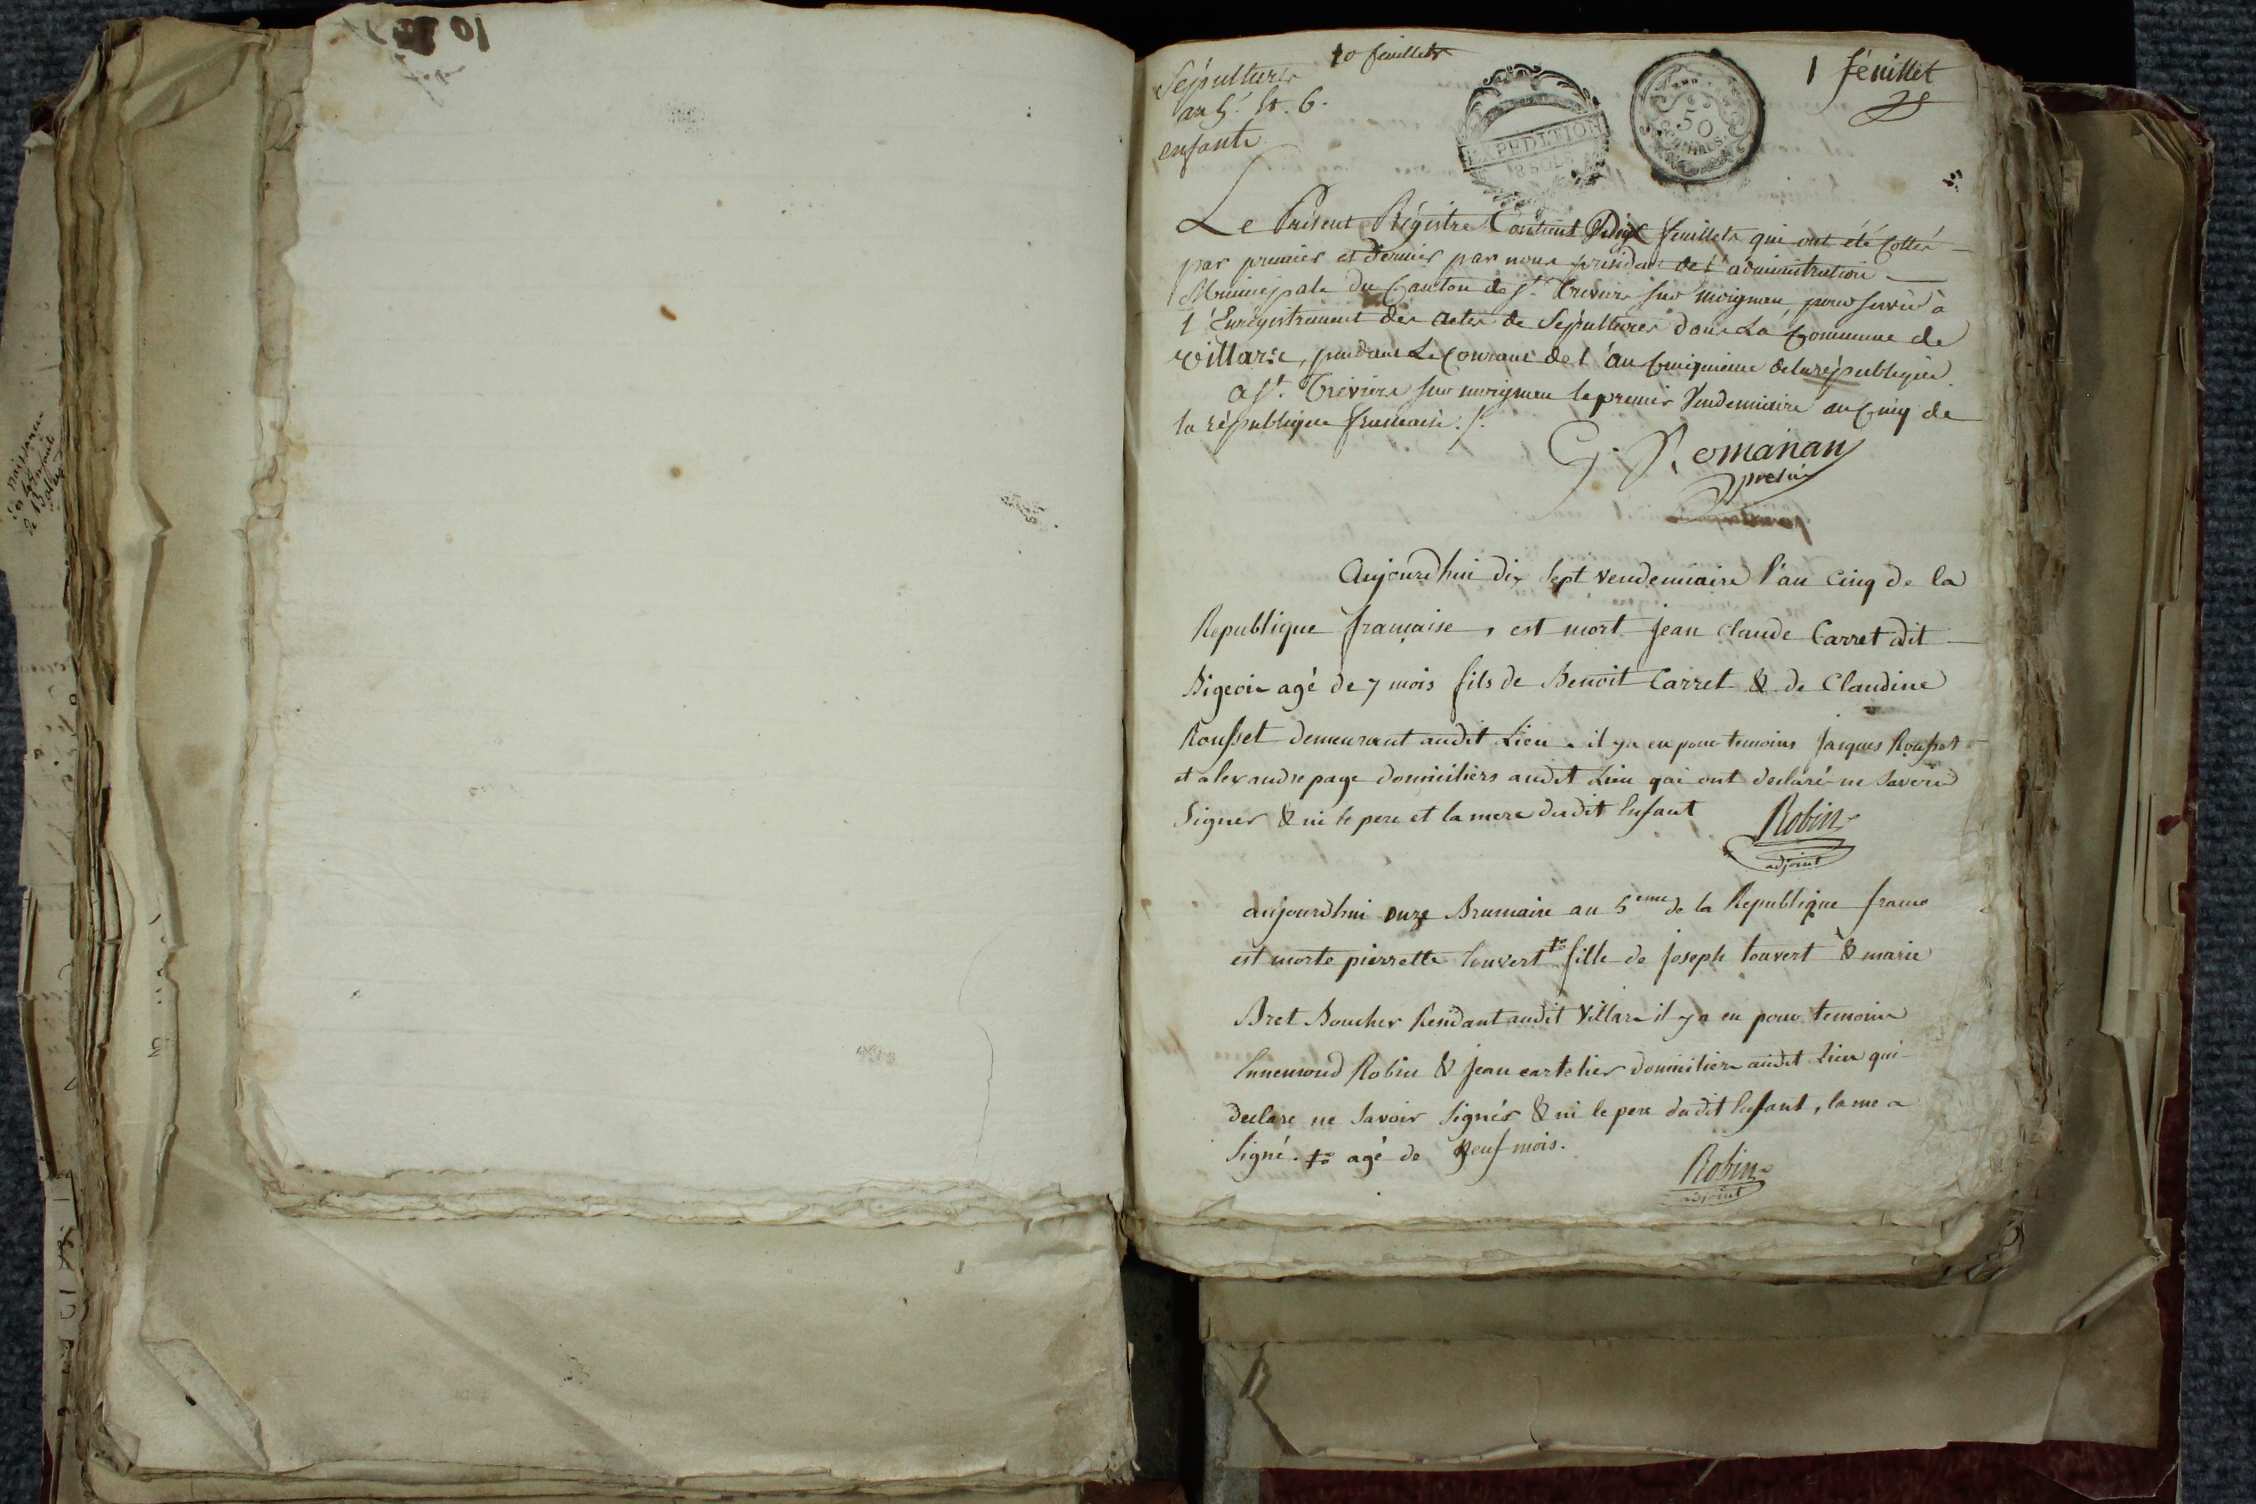 10 feuillets
1 feuillet
Sépultures
an 5e. et. 6.
enfants
EXPEDITION
8 SOLS
50
CENTIMES
Le Présent Régistre Contient Dix feuillets qui ont été Cottés
par premier et Dernier par nous président de l'administration
Municipale du Canton de St. Trivier sur moignan pour servir à
l'Enregistrement des actes de Sépultures dans La Commune de
villars, pendant Le Courant de l'an Cinquieme de la république
a St. Trivier sur moignan le premier Vendemiaire an Cinq de
la république francaise ./.
G. Romanan
presid
Aujourdhui dix sept vendemiaire l'an cinq de la
Republique française, est mort jean claude Carret dit
agé de 7 mois fils de Benoit Carret & de Claudine
Rousset demeurant audit Lieu. il y a eu pour temoins jacques Rousset
et alexandre page domiciliers audit Lieu qui ont declaré ne Savoir
Signer & ni le pere et la mere dudit Enfant
Robin
adjoint
aujourdhui onze Brumaire an 5eme de la Republique franc
est morte pierrette touvert fille de joseph touvert & marie
Bret Boucher Residant audit Villars il y a eu pour temoins
Ennemond Robin & jean cartelier domicilier audit Lieu qui
declare ne Savoir Signér & ni le pere dudit Enfant, la me a
Signé. agé de Neuf mois.
Robin
adjoint